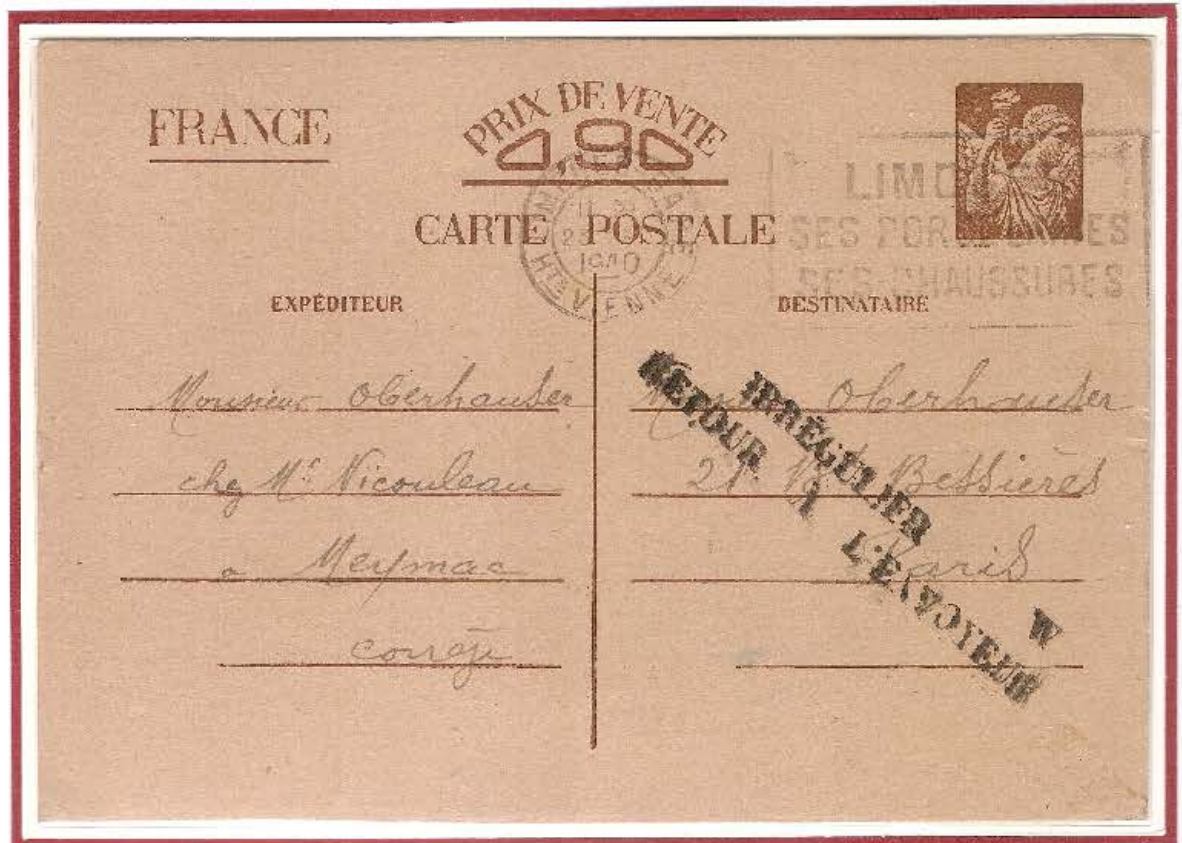 FRANCE
PRIX DE VENTE
0,90
CARTE POSTALE
1940
HTE VIENNE
SES
SES CHAUSSURES
EXPÉDITEUR
Monsieur Oberhauser
chez Mr Nicouleau
a Meymac
Corrèze
DESTINATAIRE
Oberhauser
21 Bd Bessières
Paris
IRRÉGULIER W
RETOUR À L'ENVOYEUR